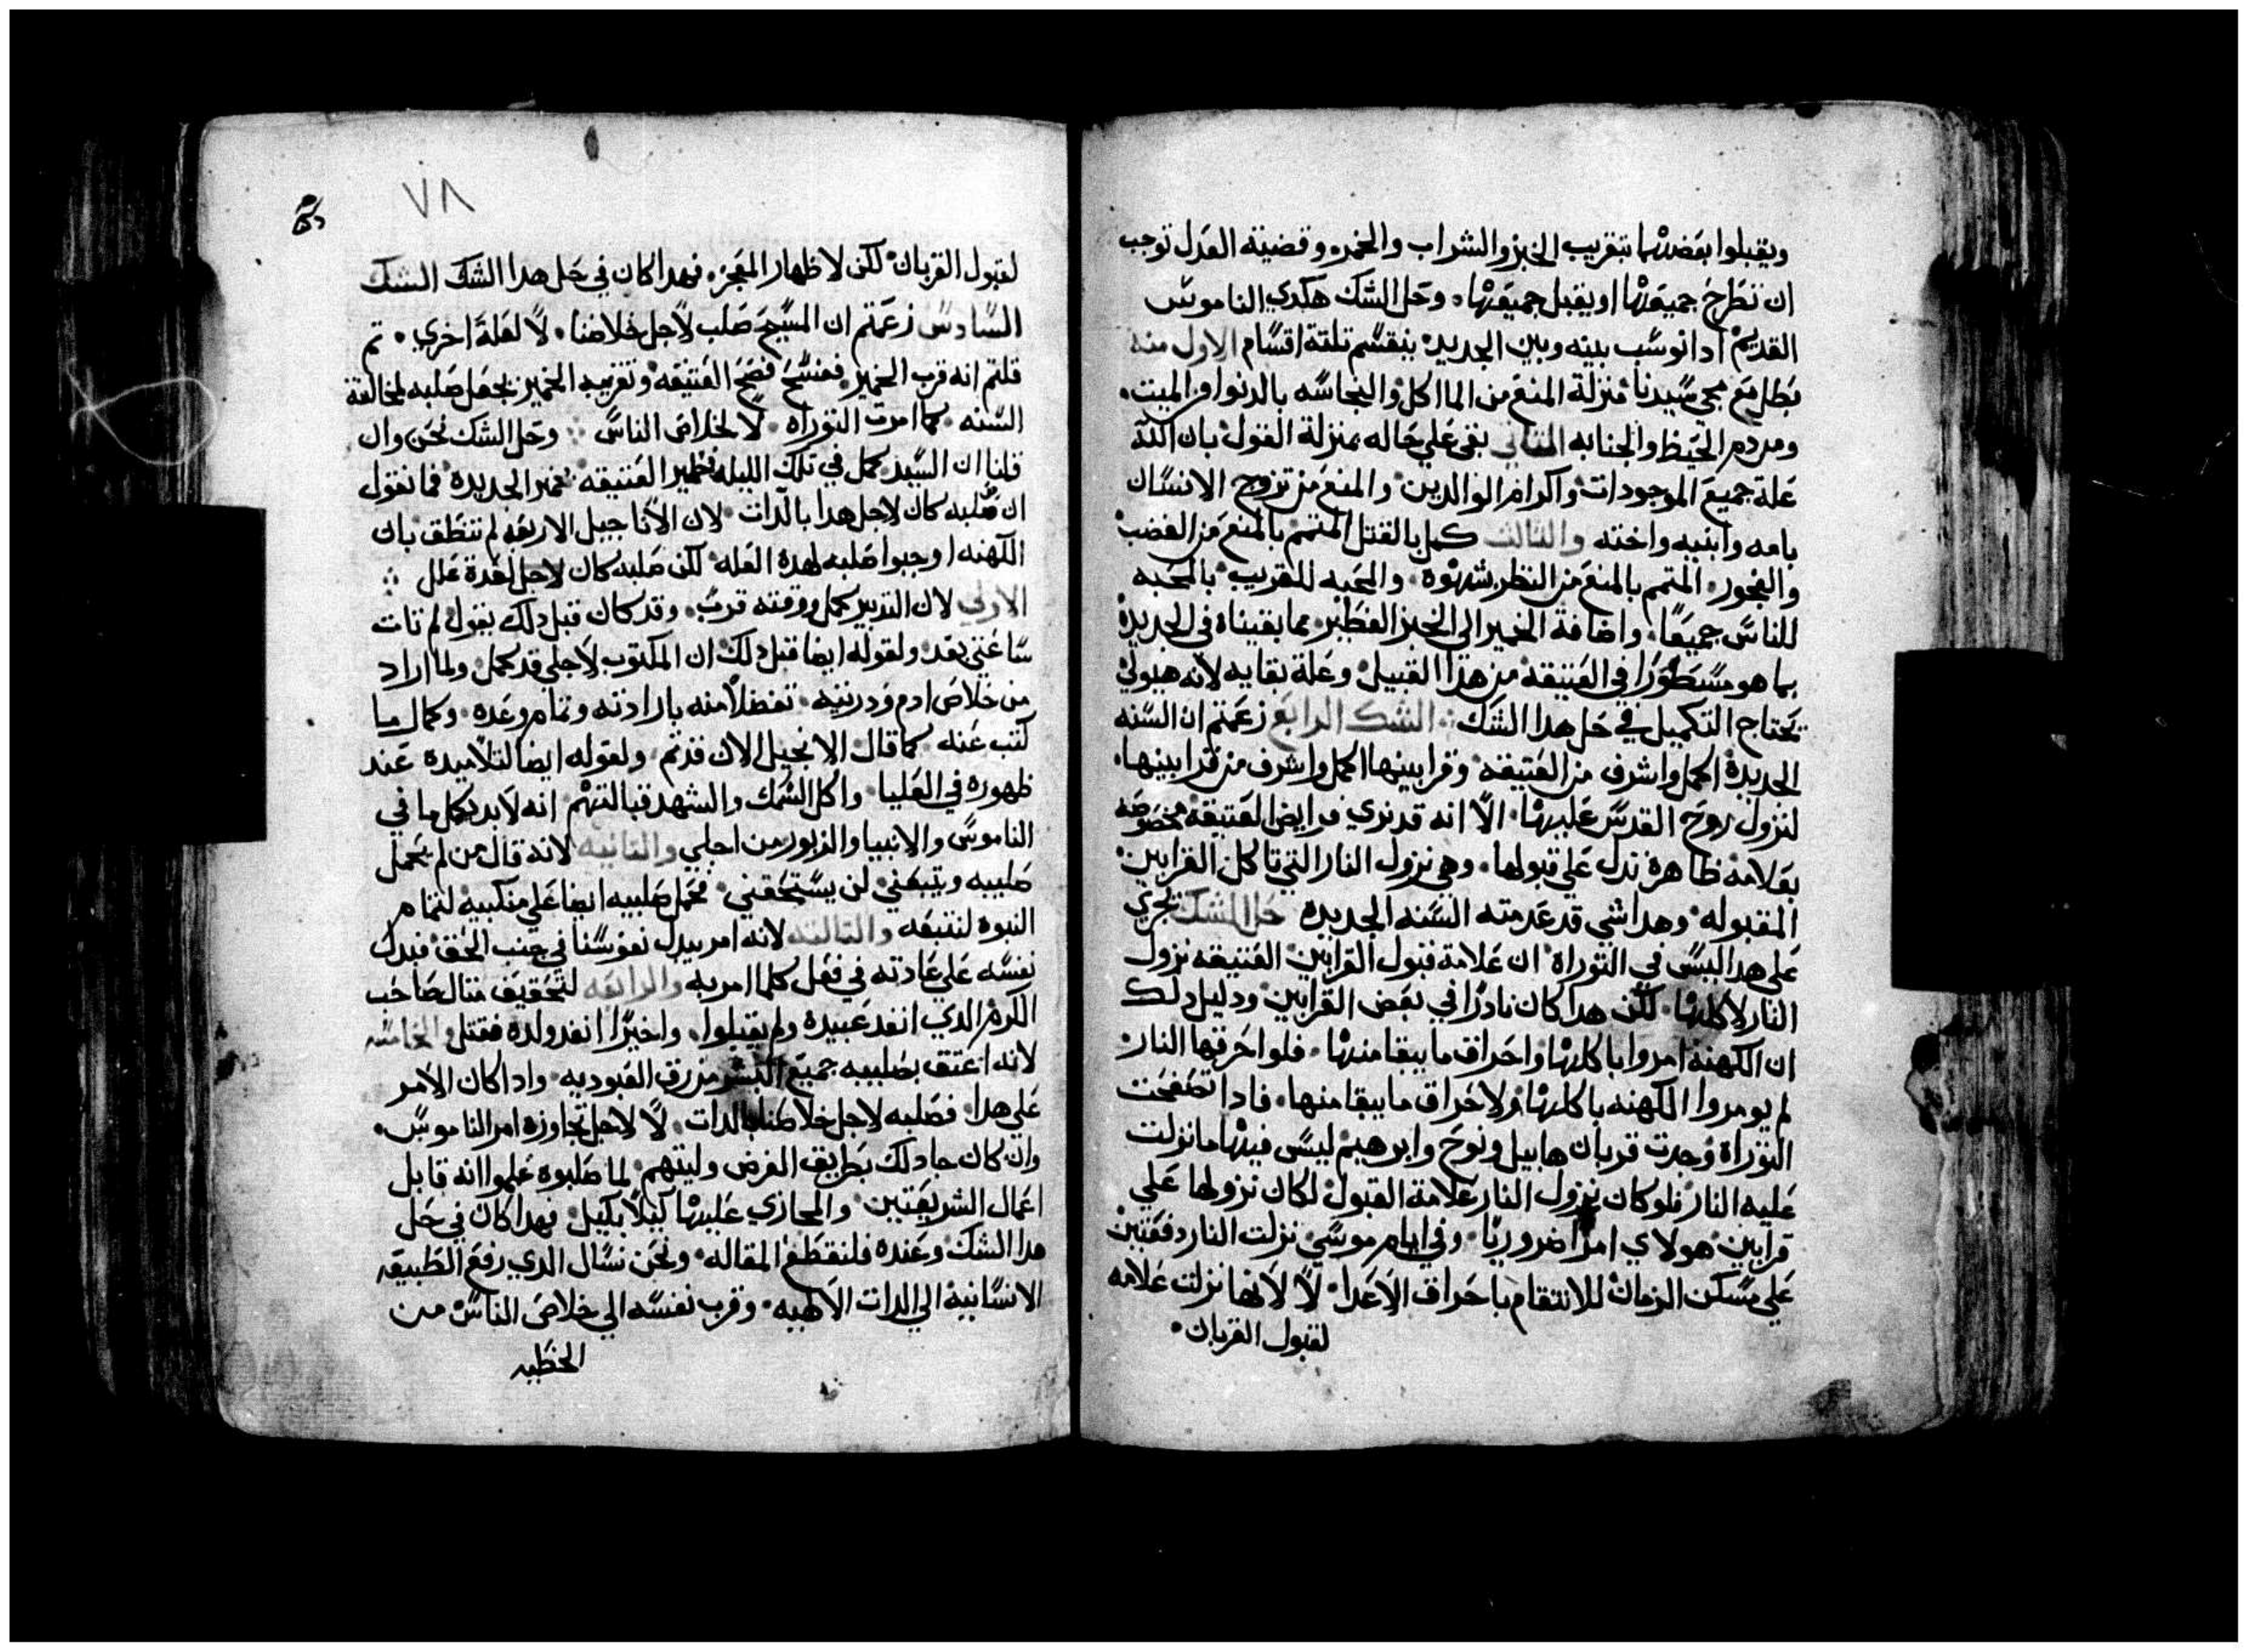 ويقبلوا بعضهما بتقريب الخبز والشراب والخمره وقضية العدل توجب
ان تطرح جميعها او يقبل جميعها. وحل الشك هكدي الناموس
القديم ادا نوسب بينه وبين الجديد ينقسم تلتة اقسام الاول منه
بطل مع مجي سيدنا منزلة المنع من الماكل والنجاسه بالدنوا من الميت.
ومن دم الحيظ والجنابه التاني بقي علي حاله بمنزلة القول بان الله
علة جميع الموجودات واكرام الوالدين والمنع من تزويج الانسان
بامه وابنيه واخته والتالت كمل بالقتل المتمم بالمنع من الغضب
والفجور. المتمم بالمنع من النظر بشهوه. والمحبه للقريب بالمحبه
للناس جميعا. واضافة الخمير الي الخبز الفطير مما بقيناه في الجديدة
بما هو مسطورا في العتيقه من هدا القبيل وعلة بقايه لانه هيولي
تحتاج التكميل في حل هدا الشك ۞ الشك الرابع زعمتم ان السنه
الجديدة اكمل واشرف من العتيقه وقرابينها اكمل واشرف من قرابينها.
لنزول روح القدس عليها. الا انه قد نري فرايض العتيقه مخصوصه
بعلامة ظاهرة تدل علي قبولها. وهي نزول النار التي تاكل القرابين
المقبوله وهدا شي قد عدمته السنه الجديده حل الشك نجري
علي هدا ليس في التوراة ان علامة قبول القرابين العتيقه نزول
النار لاكلها. لكن هدا كان نادرا في بعض القرابين ودليل دلك
ان الكهنة امروا باكلها واحراق ما يبقا منها. فلو احرقها النار
لم يومروا الكهنه باكلها ولاحراق ما يبقا منها. فادا تصفحت
التوراة وجدت قربان هابيل ونوح وابرهيم ليس فيها ما نزلت
عليه النار فلو كان نزول النار علامة القبول لكان نزولها علي
قرابين هولاي امرا ضروريا. وفي ايام موسي نزلت النار دفعتين
علي مسكن الزمان للانتقام باحراق الاعدا. لا لانها نزلت علامه
لقبول القربان.
٧٨
لقبول القربان لكن لاظهار المعجز. فهدا كان في حل هدا الشك الشك
السادس زعمتم ان المسيح صلب لاجل خلاصنا. لا لعلة اخري. تم
قلتم انه قرب الخمير ففسح فصح العتيقه وتقريبه الخمير يجعل صلبه لمخالفة
السنه كما امرت التوراه. لا لخلاص الناس ۞ وحل الشك نحن وان
قلنا ان السيد كمل في تلك الليله فطير العتيقه بخمير الجديدة فما نقول
ان صلبه كان لاجل هدا بالدات لان الاناجيل الاربعه لم تنطق بان
الكهنه اوجبوا صلبه لهدة العله لكن صلبه كان لاجل لعدة علل ۞
الاولي لان التدبير كمل ووقته قرب. وقد كان قبل دلك يقول لم تات
ساعتي بعد. ولقوله ايضا قبل دلك ان المكتوب لاجلي قد كمل ولما اراد
من خلاص ادم ودرنيته تفضلا منه بارادته وتمام وعده. وكمال ما
كتب عنه كما قال الانجيل الان قد تم ولقوله ايضا لتلاميده عند
ظهوره في العليا. واكل السمك والشهد قبالتهم انه لابد يكمل ما في
الناموس والانبيا والزبور من اجلي والتانيه لانه قال من لم يحمل
صليبه ويتبعني لن يستحقني. فحمل صليبه ايضا علي منكبيه لتمام
النبوه لنتبعه والتالته لانه امر ببدل نفوسنا في جنب الحق فبدل
نفسه علي عادته في فعل كلما امر به والرابعه لتحقيق متال صاحب
الكرم الدي انفد عبيده ولم يقبلوا. واخيرا انفد ولده فقتل والخامسه
لانه اعتق بصليبه جميع البشر من رق العبوديه. وادا كان الامر
علي هدا فصلبه لاجل خلاصنا بالدات. لا لاجل تجاوزه امر الناموس.
وان كان جا دلك بطريق العرض وليتهم لما صلبوه علموا انه قابل
اعمال الشريعتين. والمجازي عليها كيلا بكيل. فهدا كان في حل
هدا الشك وعنده فلنقطع المقاله. ونحن نسال الدي رفع الطبيعه
الانسانية الي الدات الالهيه. وقرب نفسه الي خلاص الناس من
الخطيه